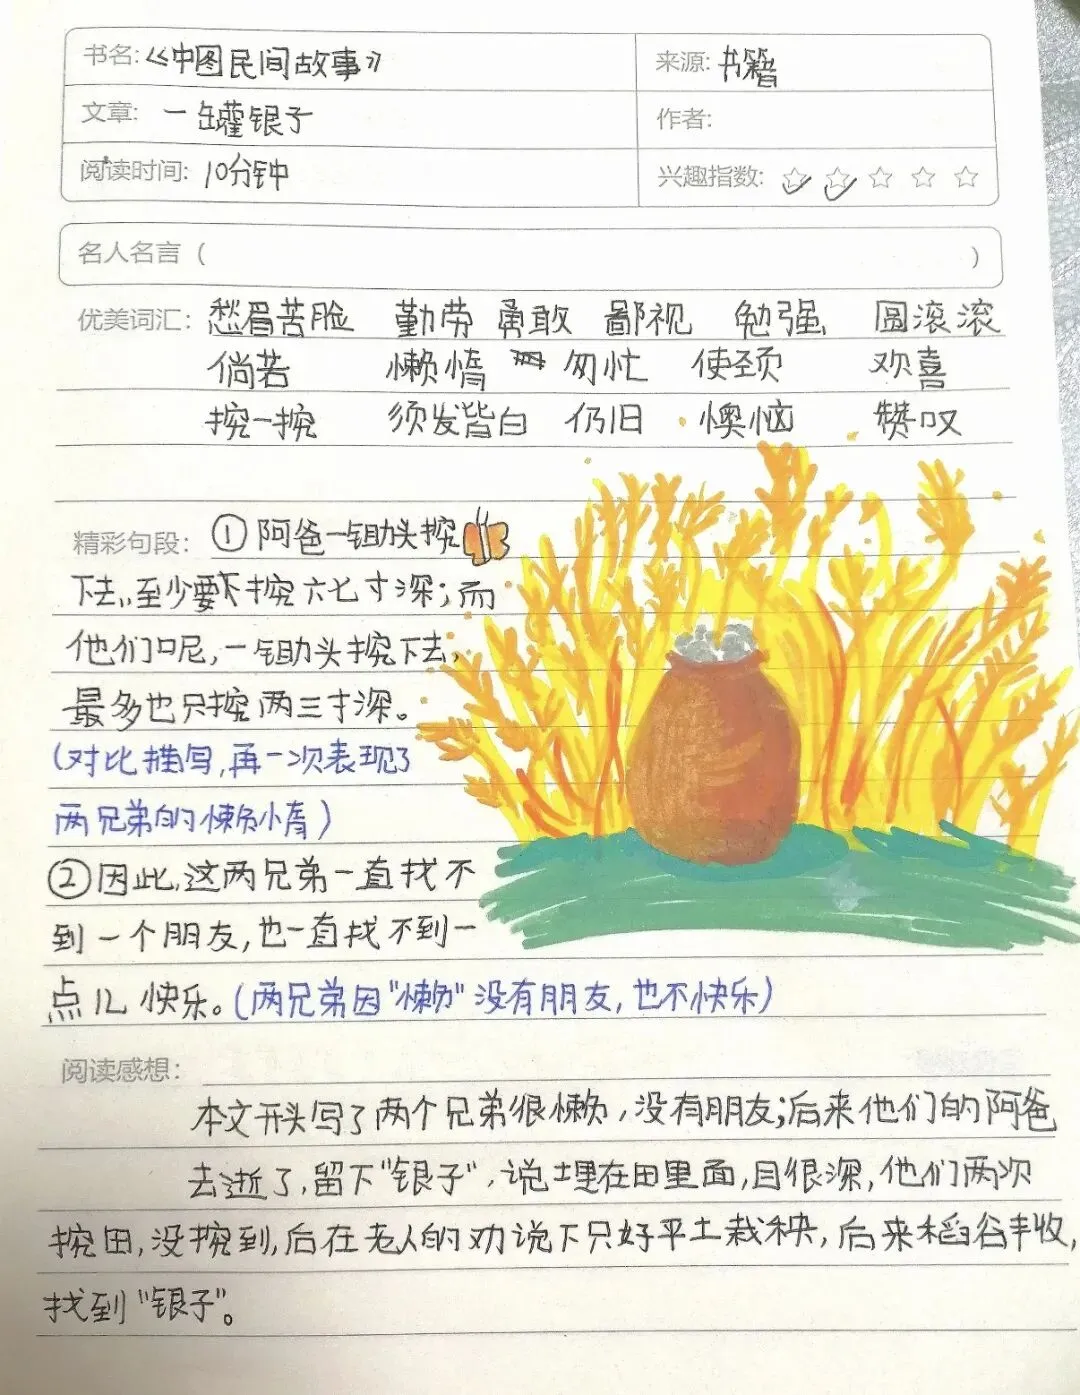 书名:《中国民间故事》 来源:书籍
文章: 一罐银子 作者:
阅读时间: 10分钟 兴趣指数: ☆☆☆☆☆
名人名言 ( )
优美词汇: 愁眉苦脸 勤劳 勇敢 鄙视 勉强 圆滚滚
倘若 懒惰 匆忙 使劲 欢喜
挖一挖 须发皆白 仍旧 懊恼 赞叹
精彩句段: ①阿爸一锄头挖
下去,至少要下挖六七寸深;而
他们呢,一锄头挖下去,
最多也只挖两三寸深。
(对比描写,再一次表现了
两兄弟的懒惰)
②因此,这两兄弟一直找不
到一个朋友,也一直找不到一
点儿快乐。(两兄弟因“懒”没有朋友,也不快乐)
阅读感想:
本文开头写了两个兄弟很懒,没有朋友;后来他们的阿爸
去逝了,留下“银子”,说埋在田里面,且很深,他们两次
挖田,没挖到,后在老人的劝说下只好平土栽秧,后来稻谷丰收,
找到“银子”。